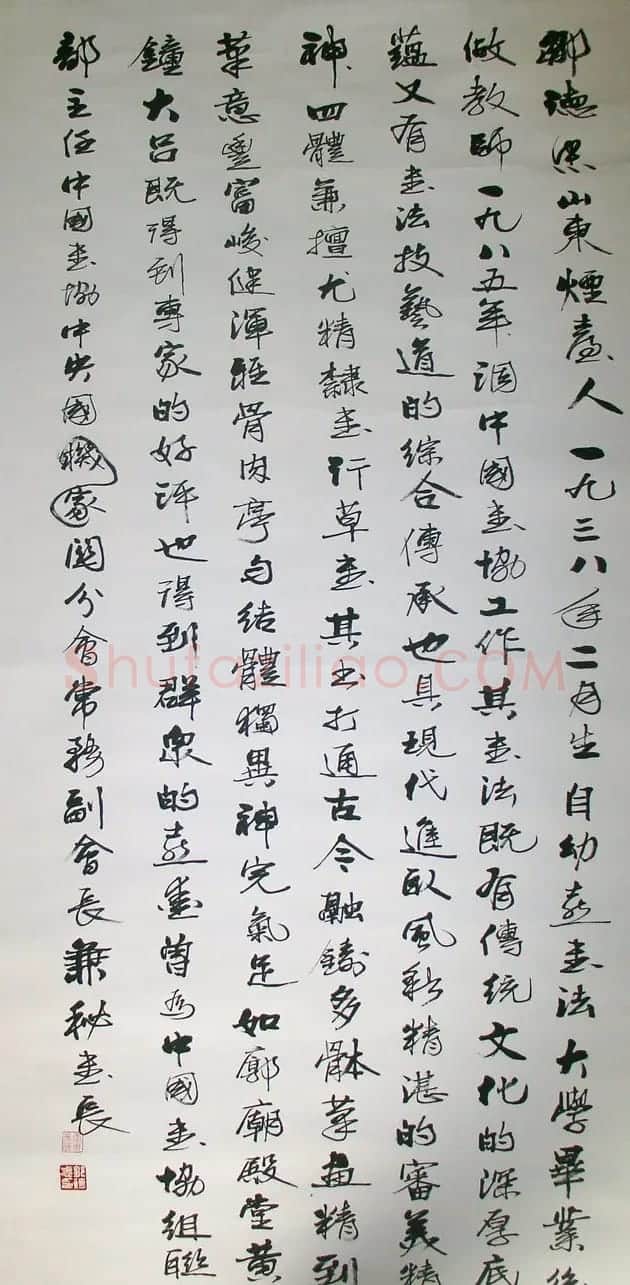 德 山東煙臺人一九三八年二月生自幼喜書法大學畢業後
做教師一九八五年調中國書協工作其書法既有傳统文化的深厚底
蘊又有書法技藝道的綜合傳承也具現代進取風彩精湛的審美精
神四體兼擅尤精隸書行草書其书打通古今融鑄多體筆畫精到
筆意豐富峻健渾雅骨肉亭勻結體獨異神完氣足如廊廟殿堂黄
鐘大吕既得到專家的好評也得到群衆的喜愛曾为中國書協組聯
部主任中國書協中央國家機関分會常務副會長兼秘書長
Shufaziliao.COM